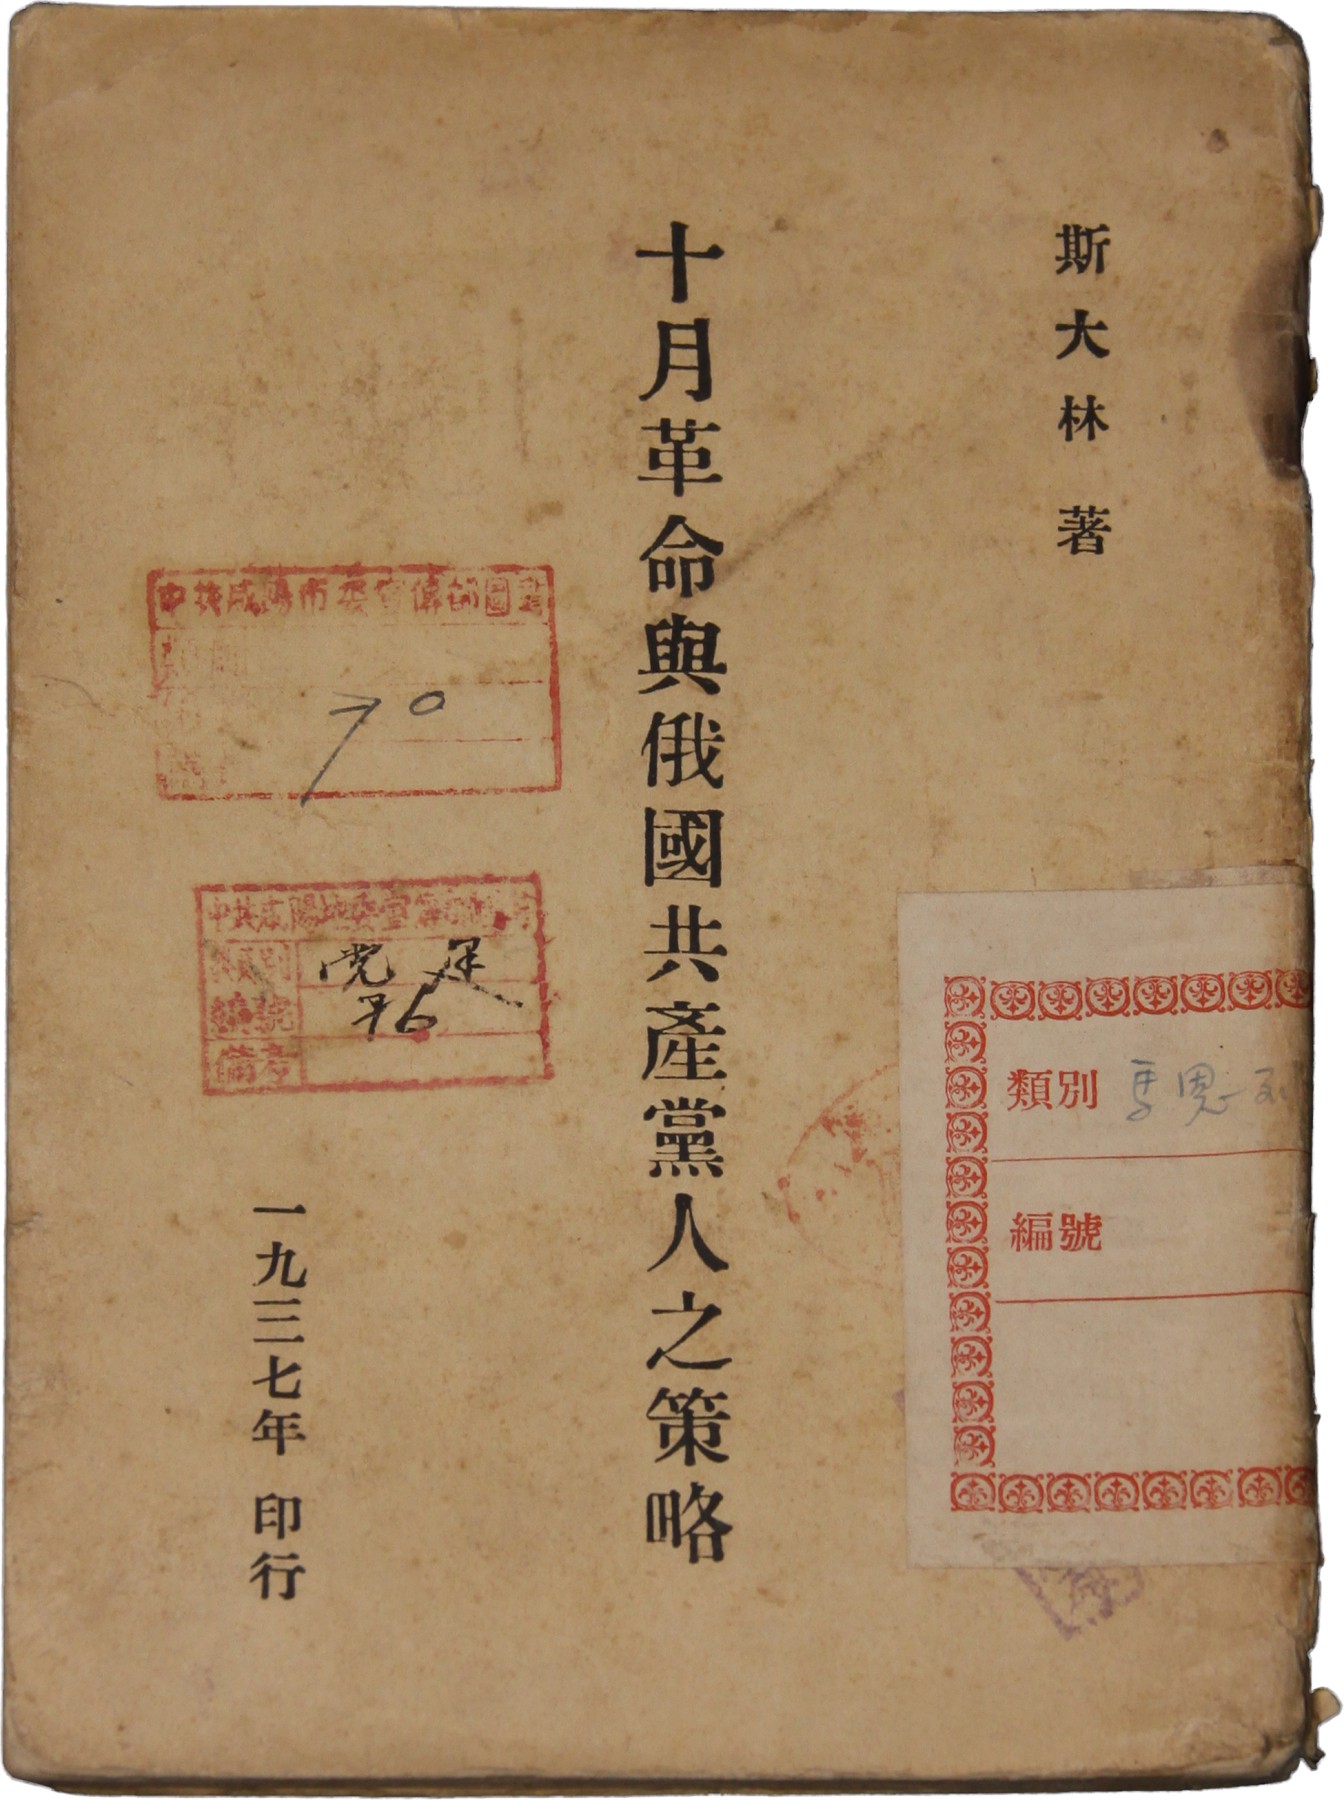 斯大林 著
十月革命與俄國共產黨人之策略
一九三七年 印行
中共咸陽市委宣傳部圖書
70
中共咸陽地委宣傳部圖書
類別
編號
76
備考
類別 馬恩
編號